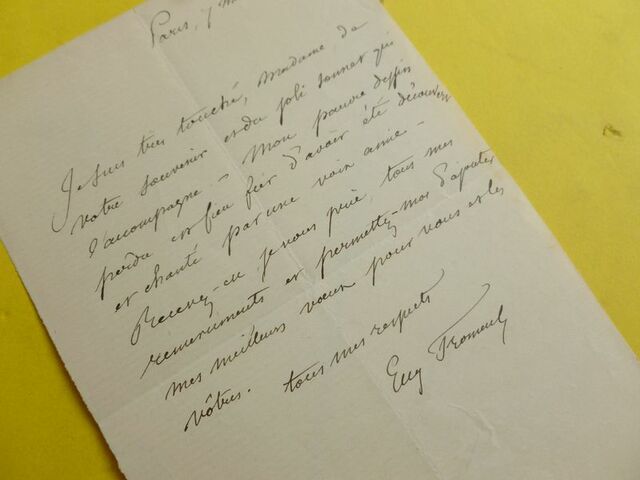 Paris, 7 m
Je suis très touché, Madame de
votre souvenir et du joli sonnet qui
l'accompagne. - Mon pauvre dessin
perdu est bien fier d'avoir été découvert
et chanté par une voix amie -
Recevez-en je vous prie, tous mes
remerciments et permettez-moi d'ajouter
mes meilleurs voeux pour vous et les
vôtres. tous mes respects
Eug Fromentin